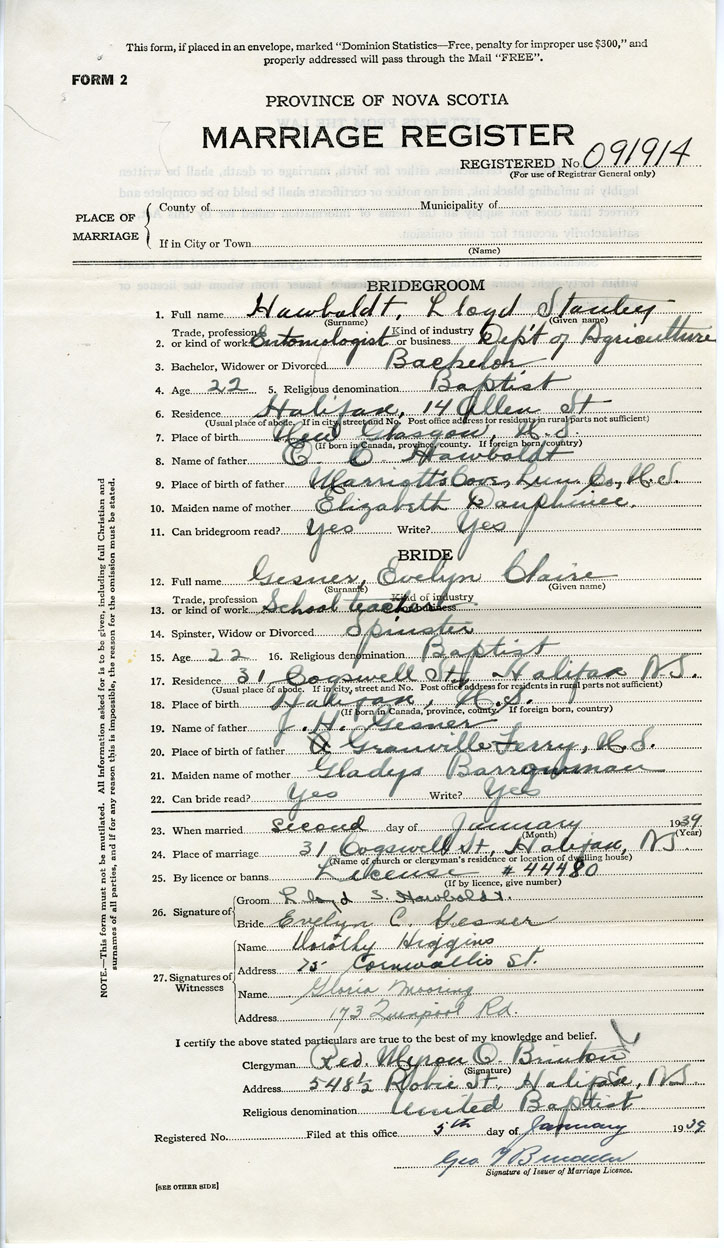 This form, if placed in an envelope, marked "Dominion Statistics—Free, penalty for improper use $300," and
properly addressed will pass through the Mail "FREE".
FORM 2
PROVINCE OF NOVA SCOTIA
MARRIAGE REGISTER
REGISTERED No. 091914
(For use of Registrar General only)
PLACE OF MARRIAGE
County of Municipality of
If in City or Town
(Name)
BRIDEGROOM
1. Full name Hawboldt, Lloyd Stanley
(Surname) (Given name)
2. Trade, profession or kind of work Entomologist Kind of industry or business Dep't of Agriculture
3. Bachelor, Widower or Divorced Bachelor
4. Age 22 5. Religious denomination Baptist
6. Residence Halifax, 14 Allen St
(Usual place of abode. If in city, street and No. Post office address for residents in rural parts not sufficient)
7. Place of birth New Glasgow, N.S.
(If born in Canada, province, county. If foreign born, country)
8. Name of father C. C. Hawboldt
9. Place of birth of father Marriott's Cove, Lun. Co, N.S.
10. Maiden name of mother Elizabeth Dauphinee.
11. Can bridegroom read? Yes Write? Yes
BRIDE
12. Full name Gesner, Evelyn Claire
(Surname) (Given name)
13. Trade, profession or kind of work School teacher Kind of industry or business
14. Spinster, Widow or Divorced Spinster
15. Age 22 16. Religious denomination Baptist
17. Residence 31 Cogswell St, Halifax N.S.
(Usual place of abode. If in city, street and No. Post office address for residents in rural parts not sufficient)
18. Place of birth Halifax, N.S.
(If born in Canada, province, county. If foreign born, country)
19. Name of father J. H. Gesner
20. Place of birth of father Granville Ferry, N.S.
21. Maiden name of mother Gladys Barrowman
22. Can bride read? Yes Write? Yes
23. When married second day of January 1939
(Month) (Year)
24. Place of marriage 31 Cogswell St, Halifax, N.S.
(Name of church or clergyman's residence or location of dwelling house)
25. By licence or banns License # 44480
(If by licence, give number)
26. Signature of
Groom Lloyd S. Hawboldt.
Bride Evelyn C. Gesner
27. Signatures of Witnesses
Name Dorothy Higgins
Address 75 Cornwallis St.
Name Gloria Mooring
Address 173 Quinpool Rd.
I certify the above stated particulars are true to the best of my knowledge and belief.
Clergyman Rev. Myron O. Brinton
(Signature)
Address 548½ Robie St, Halifax, N.S.
Religious denomination United Baptist
Registered No. Filed at this office 5th day of January 1939
Geo
Signature of Issuer of Marriage Licence.
[SEE OTHER SIDE]
NOTE.—This form must not be mutilated. All information asked for is to be given, including full Christian and
surnames of all parties, and if for any reason this is impossible, the reason for the omission must be stated.